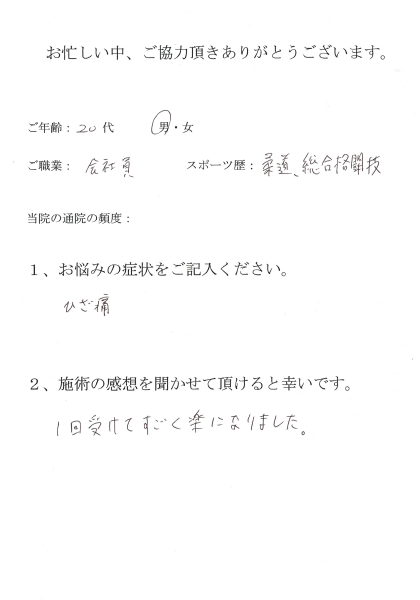 お忙しい中、ご協力頂きありがとうございます。
ご年齢：20代　男・女
ご職業：会社員　スポーツ歴：柔道、総合格闘技
当院の通院の頻度：
１、お悩みの症状をご記入ください。
ひざ痛
２、施術の感想を聞かせて頂けると幸いです。
1回受けてすごく楽になりました。